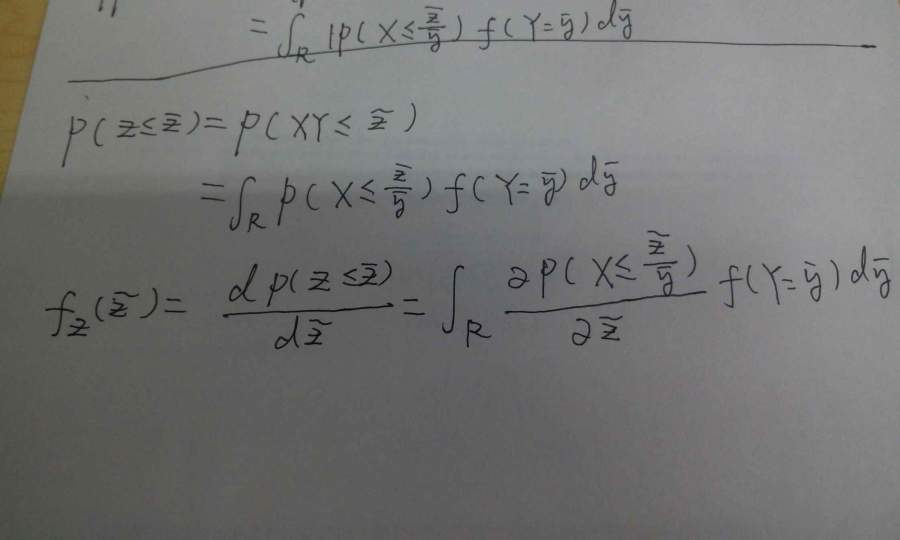 = ∫_R P(X ≤ z̃/ȳ) f(Y=ȳ) dȳ
P(Z ≤ z̃) = P(XY ≤ z̃)
= ∫_R P(X ≤ z̃/ȳ) f(Y=ȳ) dȳ
f_Z(z̃) = dP(Z ≤ z̃)/dz̃ = ∫_R ∂P(X ≤ z̃/ȳ)/∂z̃ f(Y=ȳ) dȳ